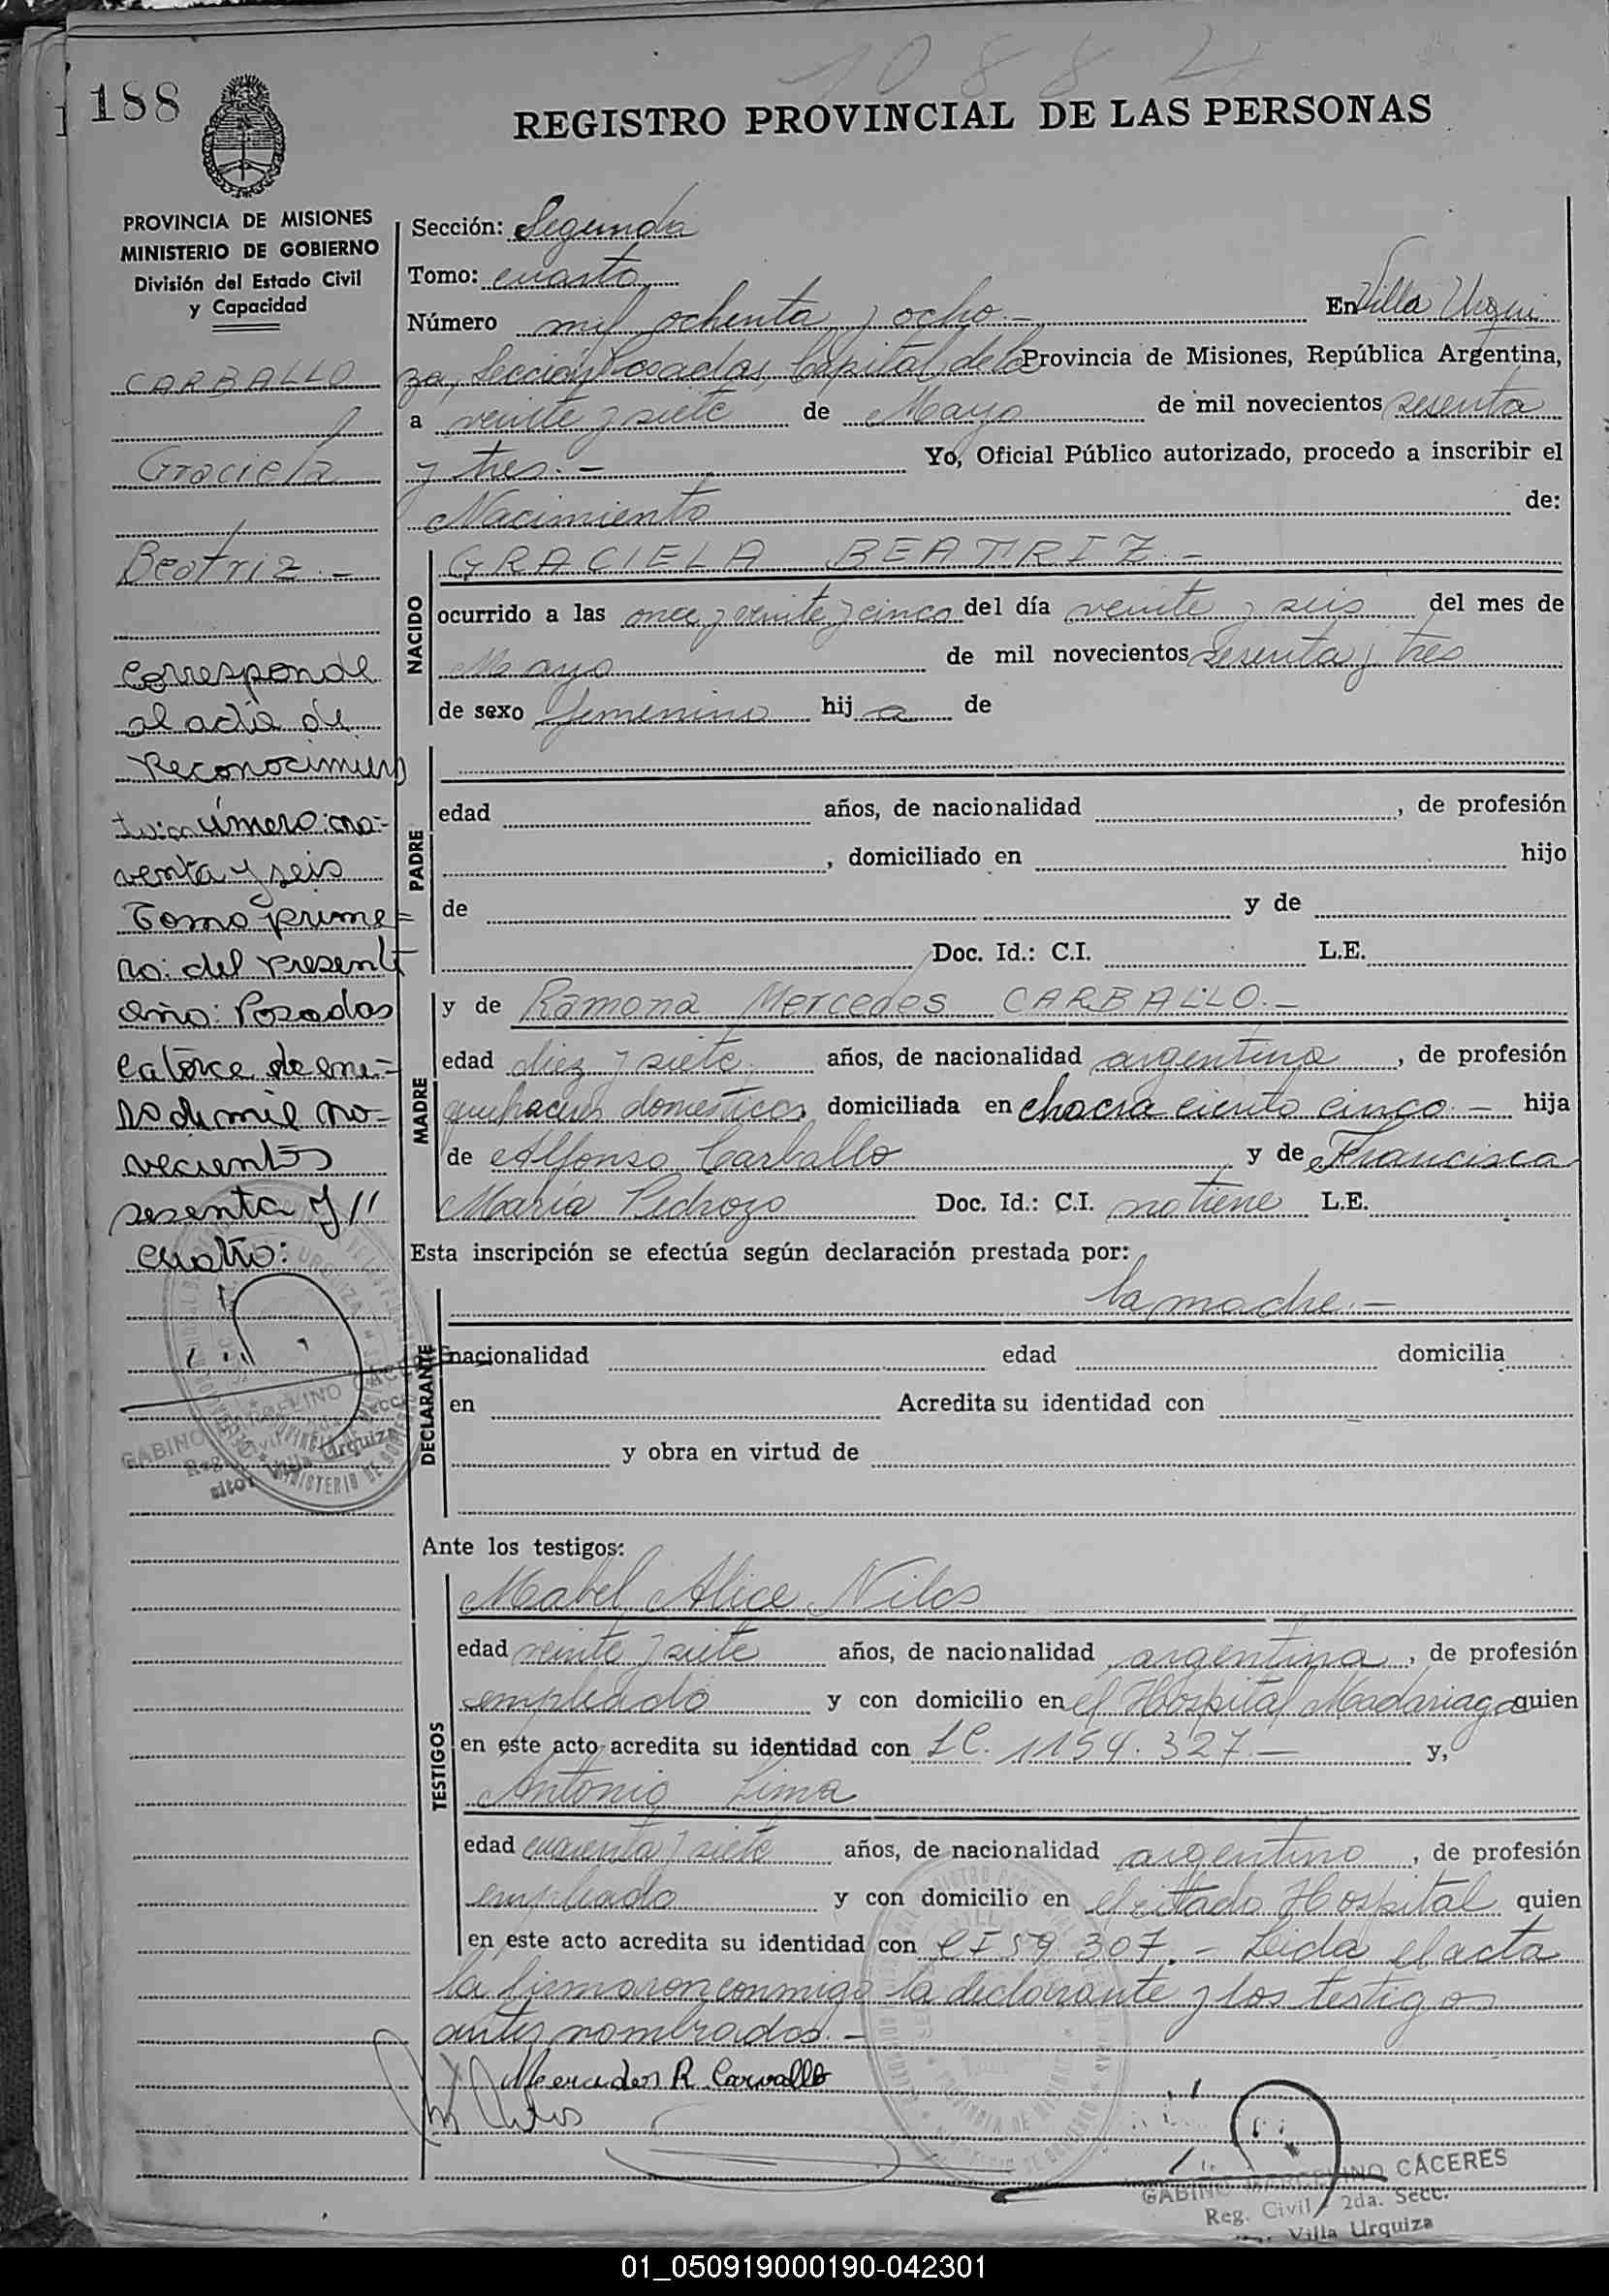 1088
188
REGISTRO PROVINCIAL DE LAS PERSONAS
PROVINCIA DE MISIONES
MINISTERIO DE GOBIERNO
División del Estado Civil
y Capacidad
CARBALLO
Graciela
Beatriz.-
Corresponde
al acta de
Reconocimien
to: número: no-
venta y seis
Tomo prime=
ro: del Presente
año: Posadas
catorce de ene-
ro de mil no-
vecientos
sesenta y //
cuatro:
GABINO MARCELINO CACERES
Reg. Civil 2da. Secc.
Villa Urquiza
Sección: Segunda
Tomo: cuarto
Número mil ochenta y ocho.- En Villa Urqui
za, Sección Posadas, Capital de la Provincia de Misiones, República Argentina,
a veinte y siete de Mayo de mil novecientos sesenta
y tres.- Yo, Oficial Público autorizado, procedo a inscribir el
Nacimiento de:
NACIDO
GRACIELA BEATRIZ.-
ocurrido a las once y veinte y cinco del día veinte y seis del mes de
Mayo de mil novecientos sesenta y tres
de sexo femenino hij a de
PADRE
edad años, de nacionalidad , de profesión
, domiciliado en hijo
de y de
Doc. Id.: C.I. L.E.
MADRE
y de Ramona Mercedes CARBALLO.-
edad diez y siete años, de nacionalidad argentina, de profesión
quehaceres domesticos domiciliada en chacra ciento cinco.- hija
de Alfonso Carballo y de Francisca
María Pedrozo Doc. Id.: C.I. no tiene L.E.
Esta inscripción se efectúa según declaración prestada por:
DECLARANTE
la madre.-
nacionalidad edad domicilia
en Acredita su identidad con
y obra en virtud de
Ante los testigos:
TESTIGOS
Mabel Alice Nilos
edad veinte y siete años, de nacionalidad argentina, de profesión
empleado y con domicilio en el Hospital Madariaga quien
en este acto acredita su identidad con LC. 1154.327.- y,
Antonio Lima
edad cuarenta y siete años, de nacionalidad argentino, de profesión
empleado y con domicilio en el citado Hospital quien
en este acto acredita su identidad con CI 59 307.- Leida el acta
la firmaron conmigo la declarante y los testigos
antes nombrados.-
Mercedes R Carvallo
GABINO MARCELINO CÁCERES
Reg. Civil 2da. Secc.
Villa Urquiza
01_050919000190-042301